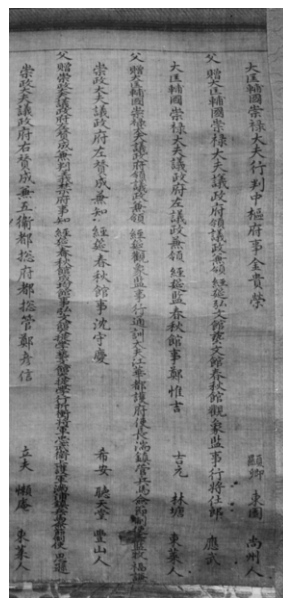 大匡輔國崇祿大夫行判中樞府事金貴榮 顯卿 東園 尚州人
父 贈大匡輔國崇祿大夫議政府領議政兼領 經筵弘文館藝文館春秋館觀象監事行將仕郎 應武
大匡輔國崇祿大夫議政府左議政兼領 經筵監春秋館事鄭惟吉 吉元 林塘 東萊人
父 贈大匡輔國崇祿大夫議政府領議政兼領 經筵觀象監事行通訓大夫江華都護府使
崇政大夫議政府左贊成兼知 經筵春秋館事沈守慶 希安 聽天堂 豐山人
父 贈崇政大夫議政府左贊成兼判義禁府事知 經筵春秋館
崇政大夫議政府右贊成兼五衛都摠府都摠管鄭彥信 立夫 懶庵 東萊人